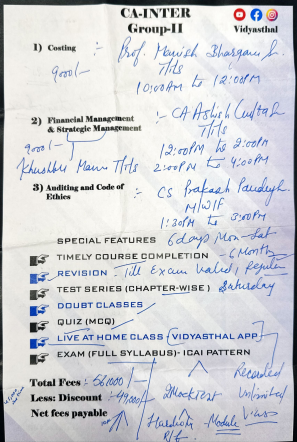 CA-INTER
Group-II
Vidyasthal
1) Costing :- Prof. Manish Bhargava Sir
9000/- TThS
10:00AM to 12:00PM
2) Financial Management & Strategic Management :- CA Ashish Gupta Sir
TThS
9000/- 12:00PM to 2:00PM
Khushbu Mam TThS 2:00PM to 4:00PM
3) Auditing and Code of Ethics :- CS Prakash Pandey Sir
M/W/F
1:30PM to 3:00PM
SPECIAL FEATURES 6 days Mon-Sat
TIMELY COURSE COMPLETION - 6 Month
REVISION - Till Exam Valid, Regular
TEST SERIES (CHAPTER-WISE) Saturday
DOUBT CLASSES
QUIZ (MCQ)
LIVE AT HOME CLASS (VIDYASTHAL APP)
EXAM (FULL SYLLABUS)- ICAI PATTERN Recorded
Total Fees :- 56,000/- Unlimited
Less: Discount :- 2 Mock Test Views
Net fees payable Module